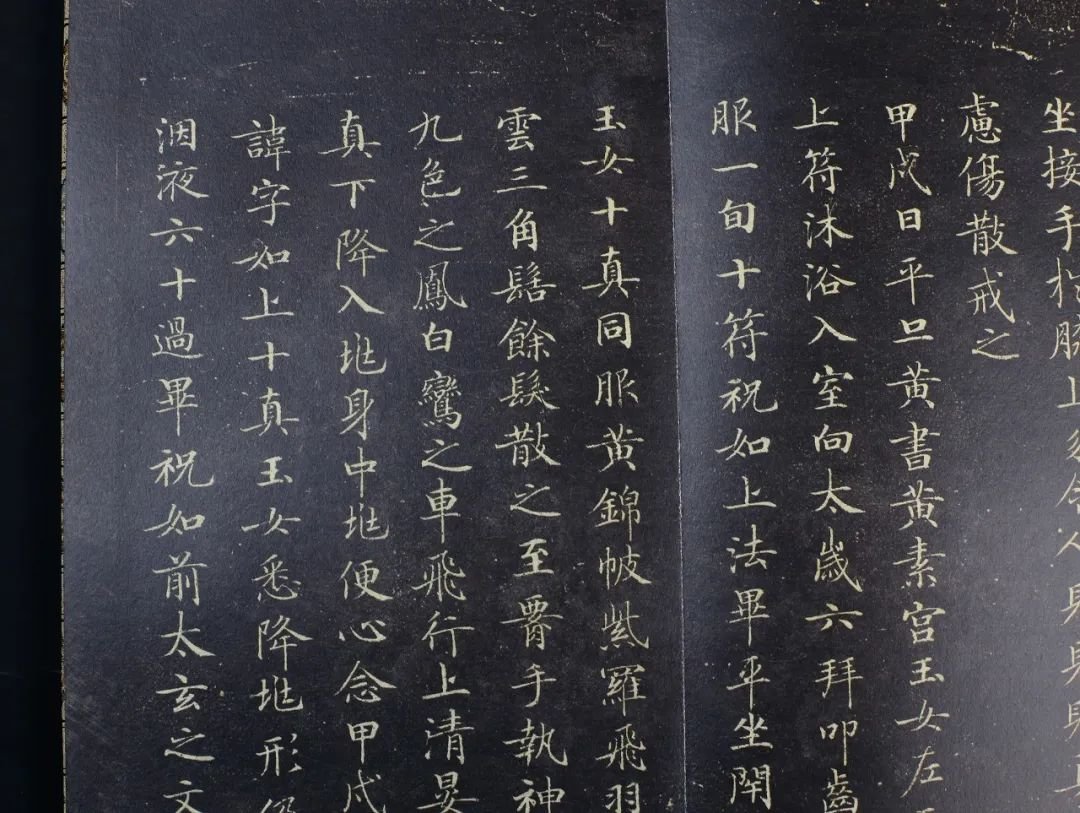 坐接手於膝上勿令人見與見真
慮傷散戒之
甲戌日平旦黃書黃素宮玉女左
上符沐浴入室向太歲六拜叩齒
服一旬十符祝如上法畢平坐閉
玉女十真同服黃錦帔紫羅飛羽
雲三角髻餘髮散之至署手執神
九色之鳳白鸞之車飛行上清晏
真下降入兆身中兆便心念甲戌
諱字如上十真玉女悉降兆形
咽液六十過畢祝如前太玄之文